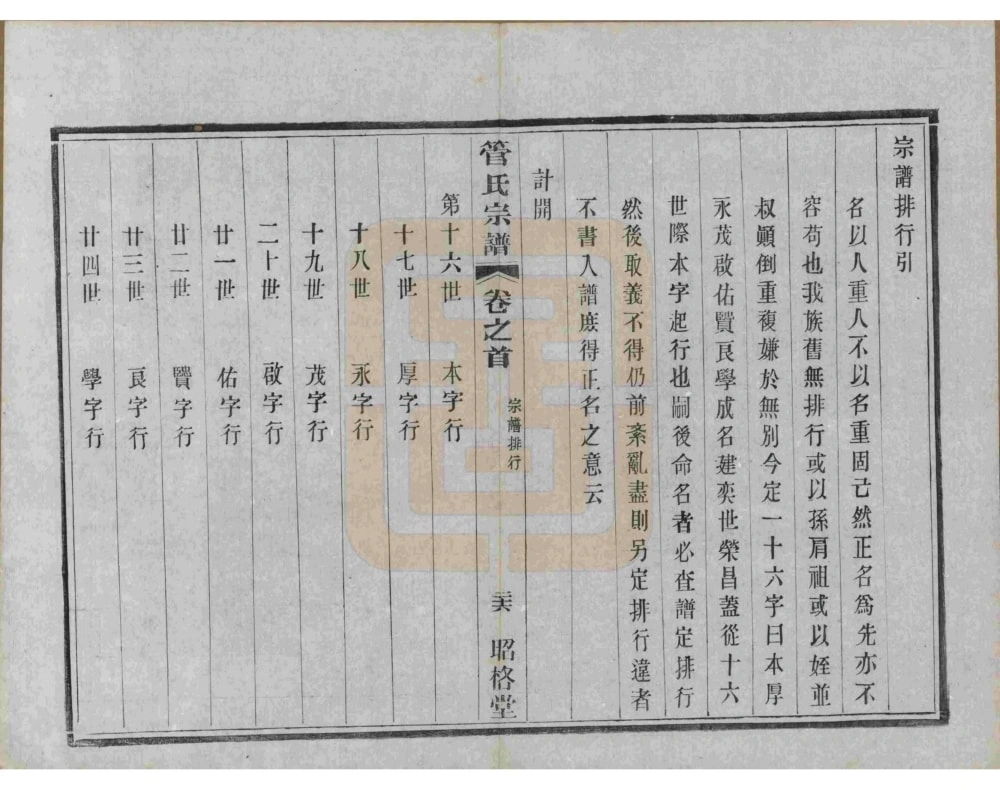 宗譜排行引
名以人重人不以名重固已然正名爲先亦不
容苟也我族舊無排行或以孫肩祖或以姪並
叔顚倒重複嫌於無別今定一十六字曰本厚
永茂啟佑賢良學成名建奕世榮昌蓋從十六
世際本字起行也嗣後命名者必查譜定排行
然後取義不得仍前紊亂盡則另定排行違者
不書入譜庶得正名之意云
計開
管氏宗譜 卷之首 宗譜排行 二六 昭格堂
第十六世 本字行
十七世 厚字行
十八世 永字行
十九世 茂字行
二十世 啟字行
廿一世 佑字行
廿二世 賢字行
廿三世 良字行
廿四世 學字行